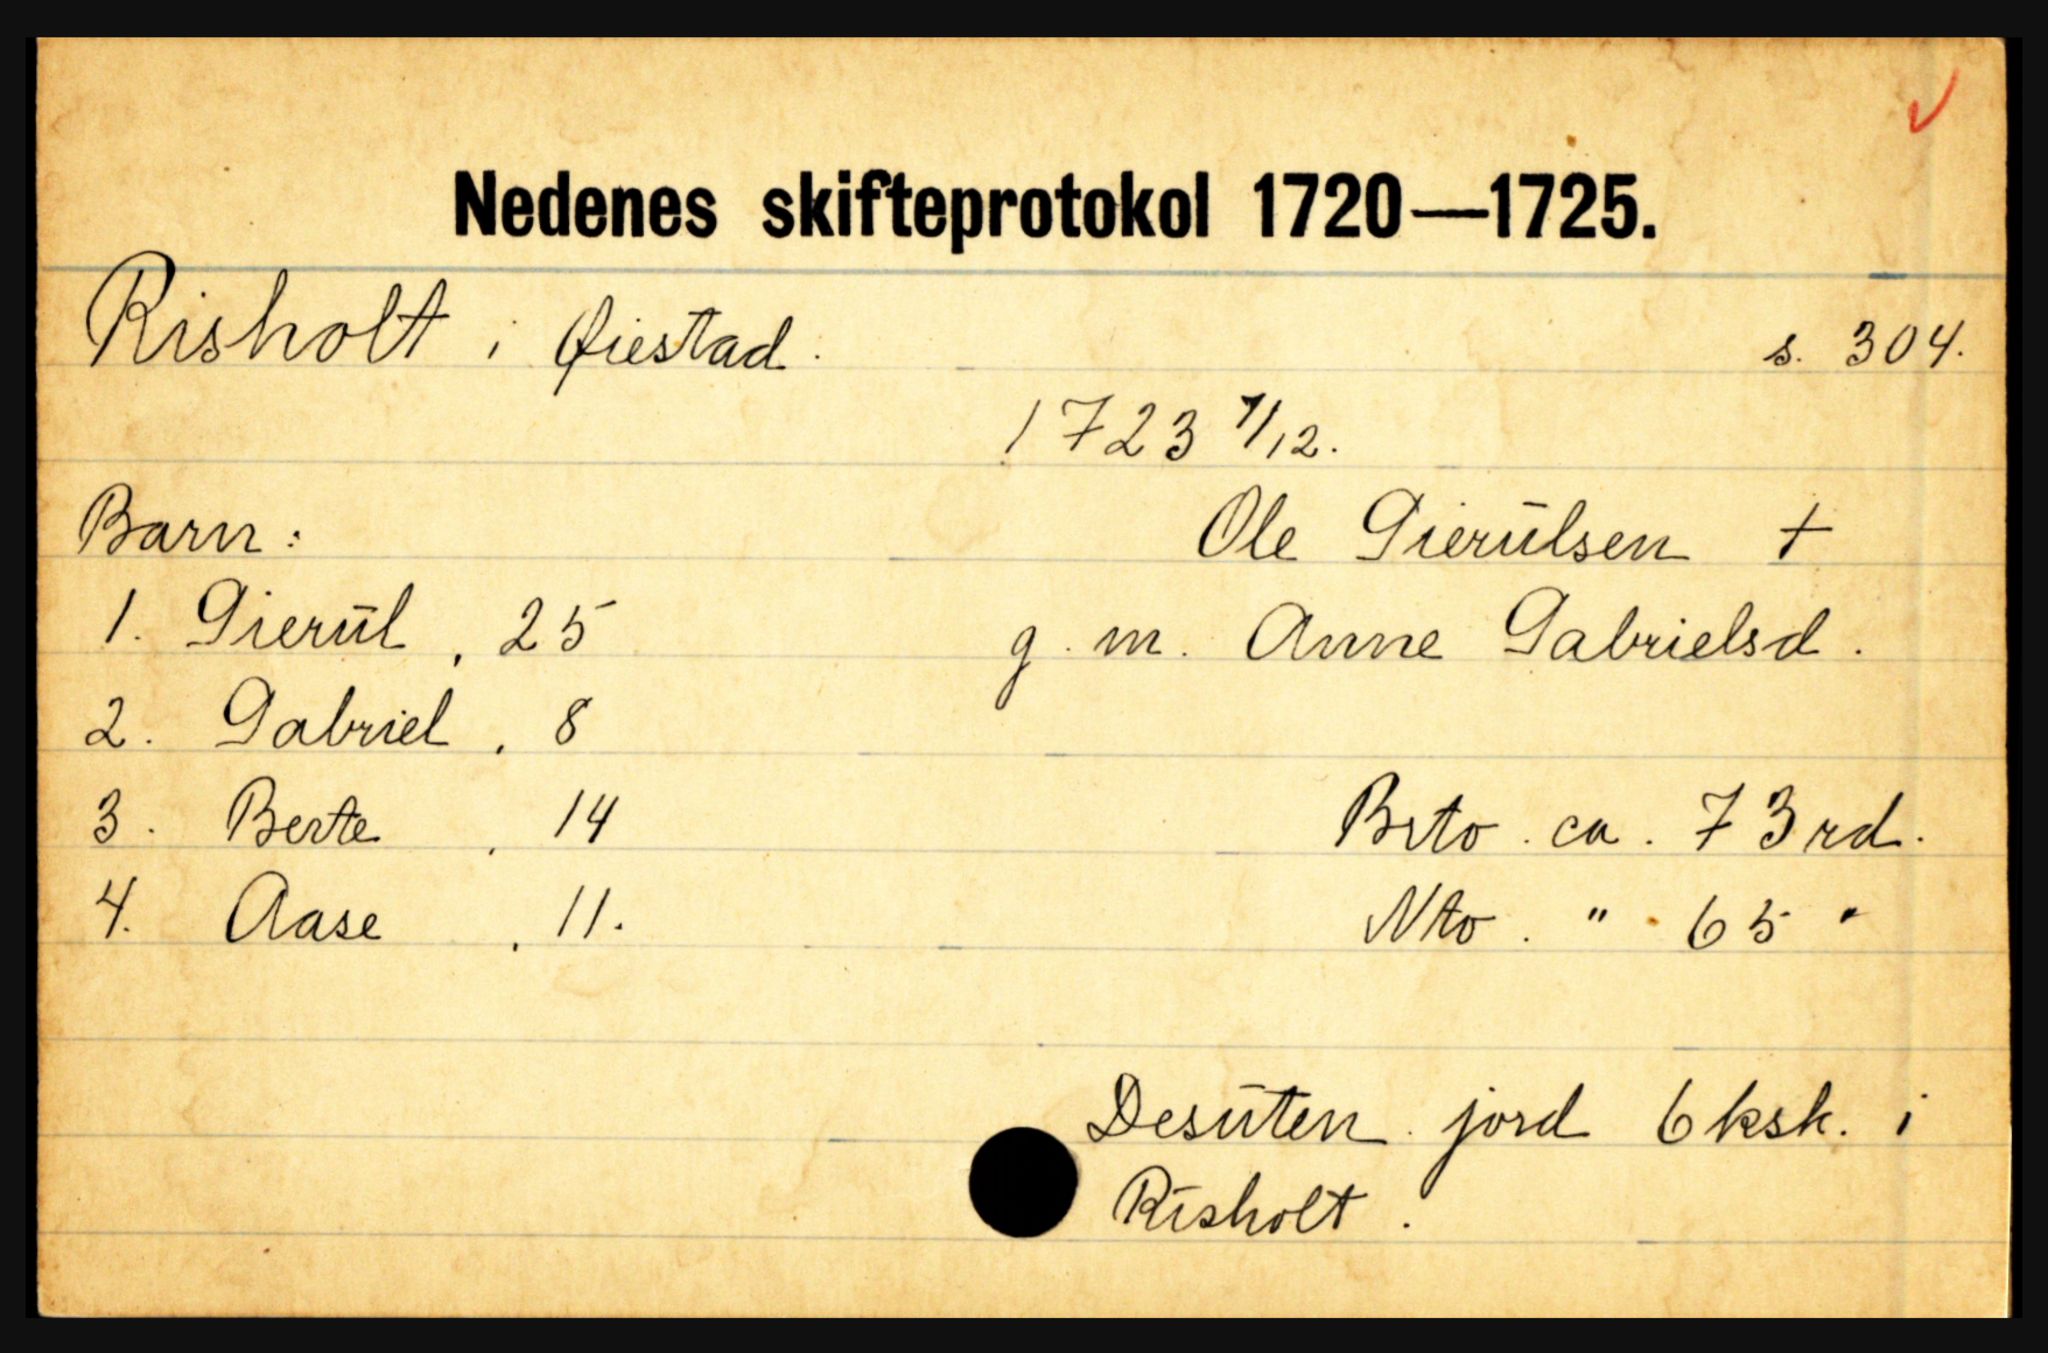 Nedenes skifteprotokol 1720—1725.
Risholt i Øiestad. s. 304.
1723 7/12.
Barn: Ole Gierülsen †
1. Gierül, 25 g. m. Anne Gabrielsd.
2. Gabriel, 8
3. Berte, 14 Brto. ca. 73 rd.
4. Aase, 11. Nto. " 65 "
Desüten jord 6 ksk. i
Risholt.